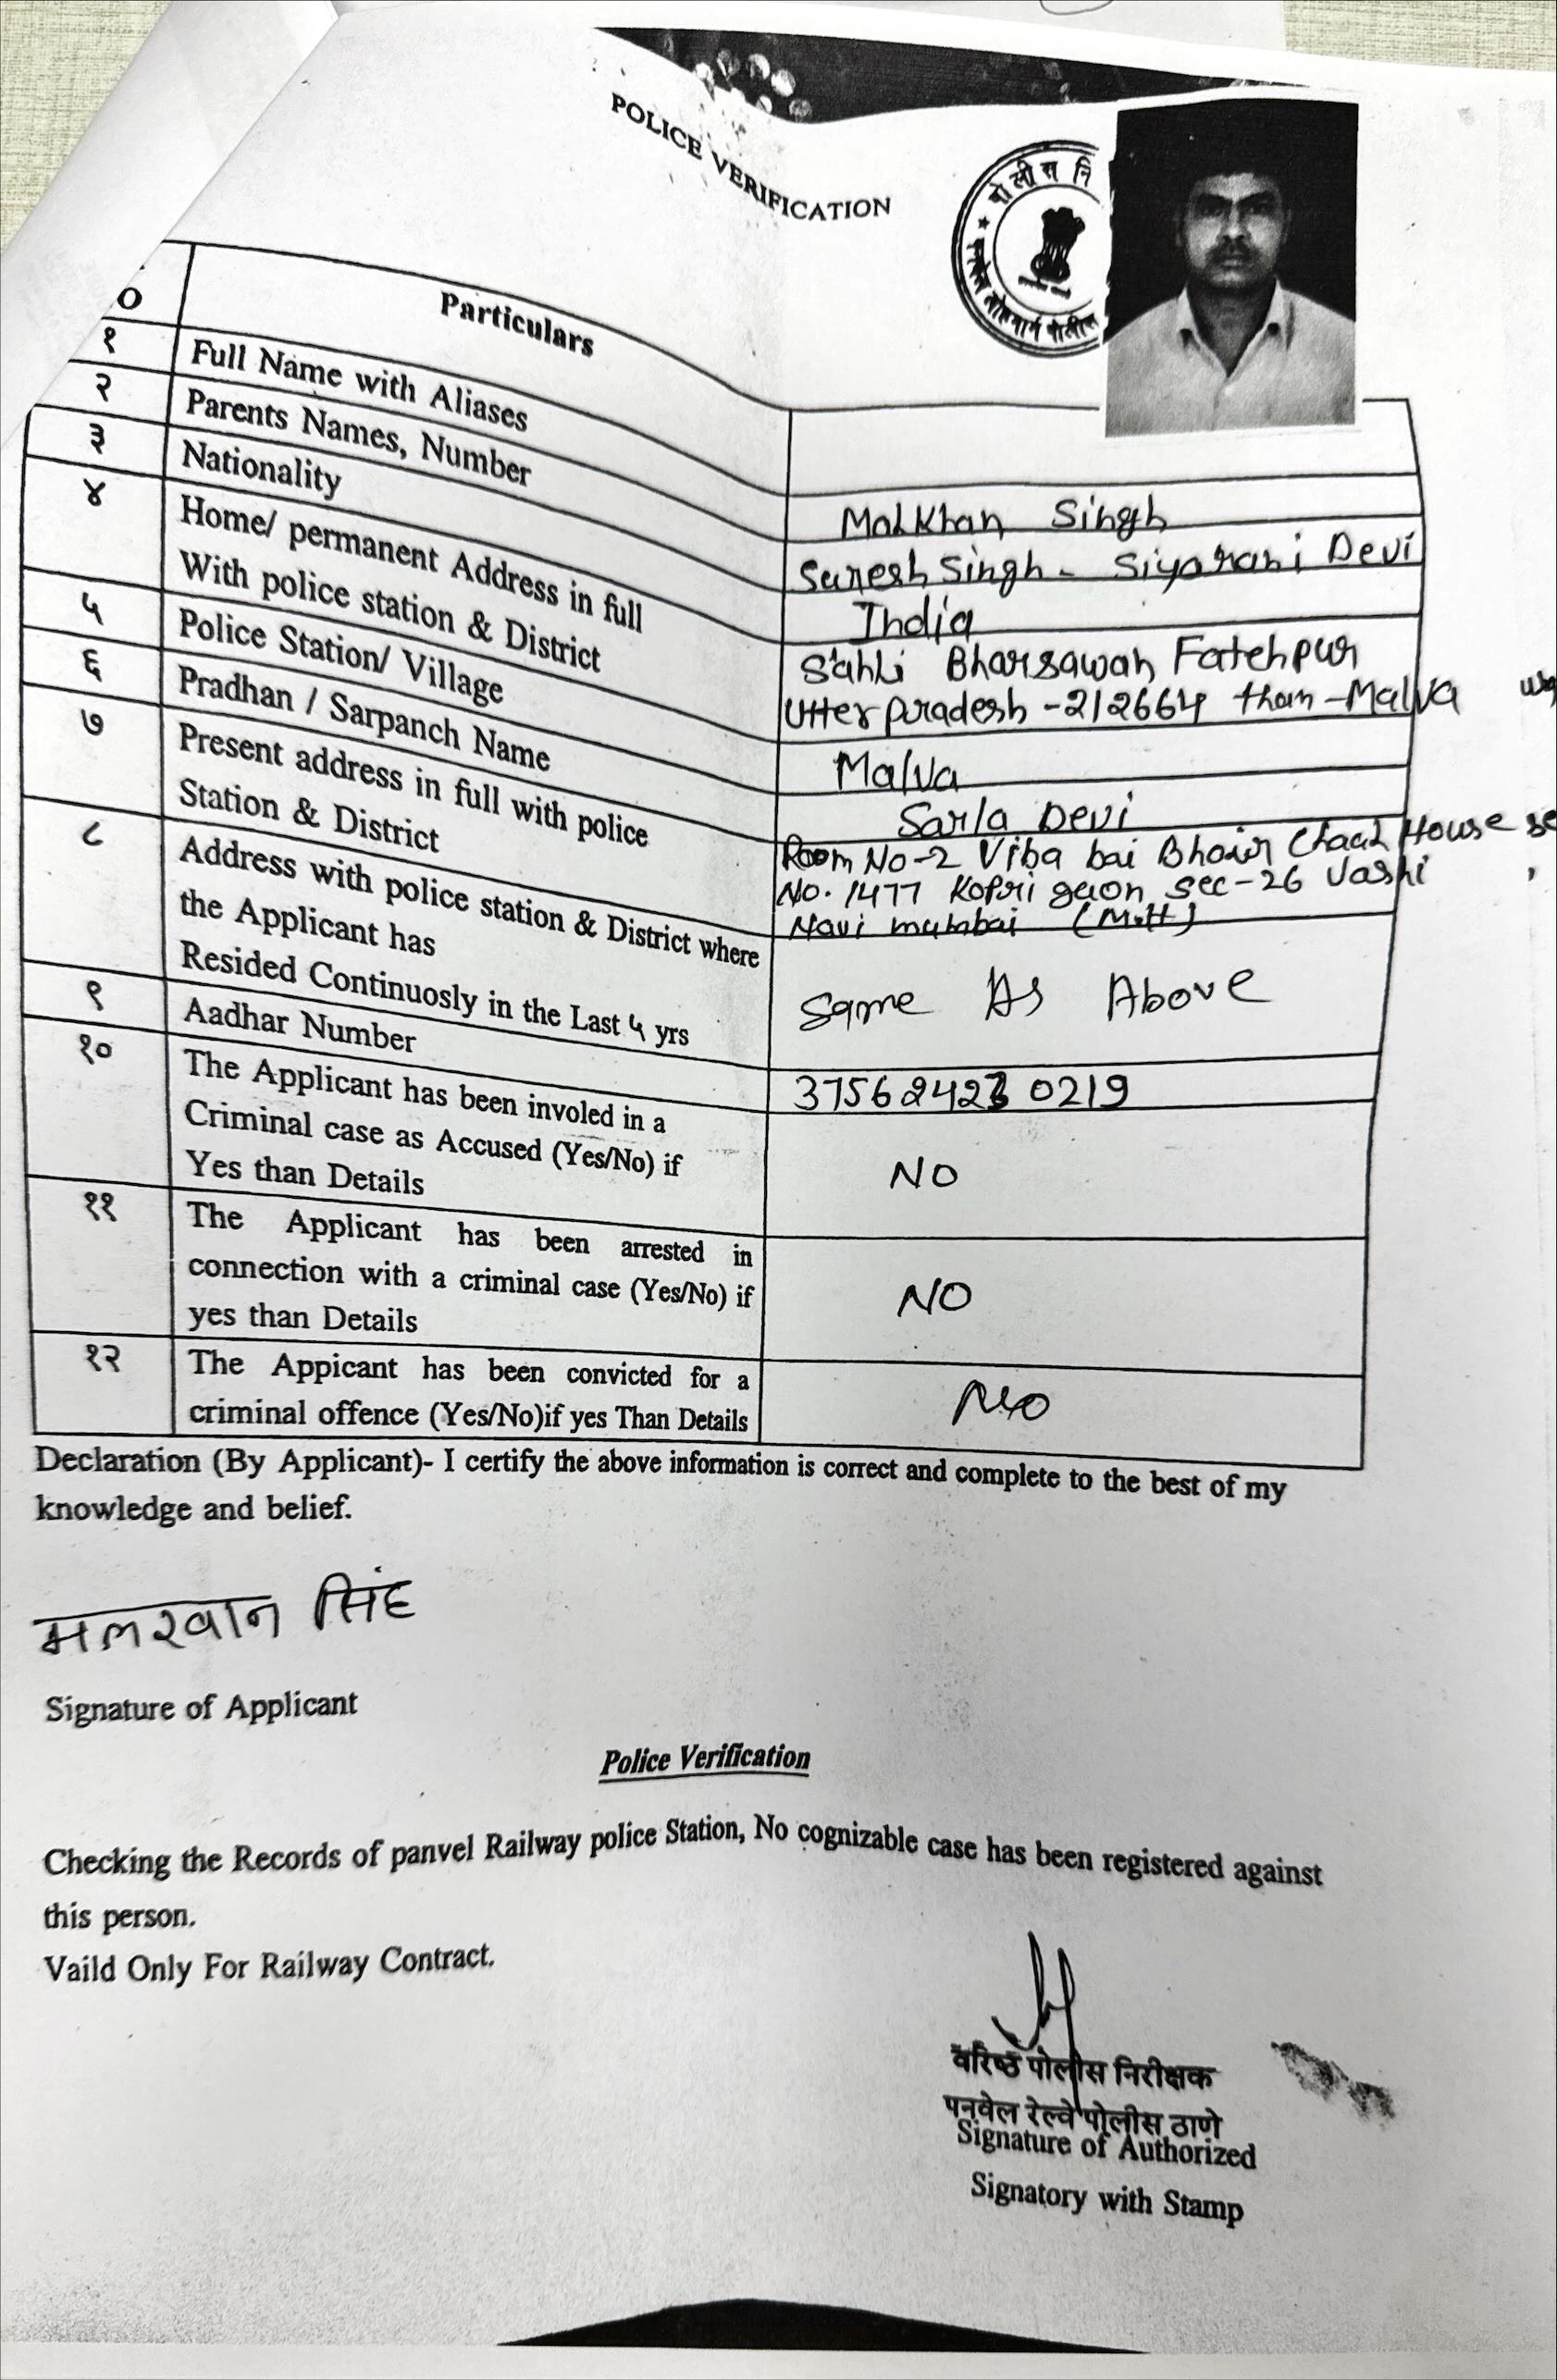 POLICE VERIFICATION
पोलीस नि
पनवेल लोहमार्ग पोलीस
O
Particulars
१
Full Name with Aliases
Malkhan Singh
२
Parents Names, Number
Suresh Singh - Siyarani Devi
३
Nationality
India
४
Home/ permanent Address in full
With police station & District
Sahli Bharsawan Fatehpur
Utter pradesh - 212664 than - Malva
५
Police Station/ Village
Malva
६
Pradhan / Sarpanch Name
Sarla Devi
७
Present address in full with police
Station & District
Room No-2 Viba bai Bhoir Chaal House se
No. 1477 Kopri gaon sec-26 Vashi
Navi mumbai (M.H)
८
Address with police station & District where
the Applicant has
Resided Continuosly in the Last ५ yrs
Same As Above
९
Aadhar Number
37562423 0219
१०
The Applicant has been involed in a
Criminal case as Accused (Yes/No) if
Yes than Details
NO
११
The Applicant has been arrested in
connection with a criminal case (Yes/No) if
yes than Details
NO
१२
The Appicant has been convicted for a
criminal offence (Yes/No)if yes Than Details
NO
Declaration (By Applicant)- I certify the above information is correct and complete to the best of my
knowledge and belief.
मलखान सिंह
Signature of Applicant
Police Verification
Checking the Records of panvel Railway police Station, No cognizable case has been registered against
this person.
Vaild Only For Railway Contract.
वरिष्ठ पोलीस निरीक्षक
पनवेल रेल्वे पोलीस ठाणे
Signature of Authorized
Signatory with Stamp